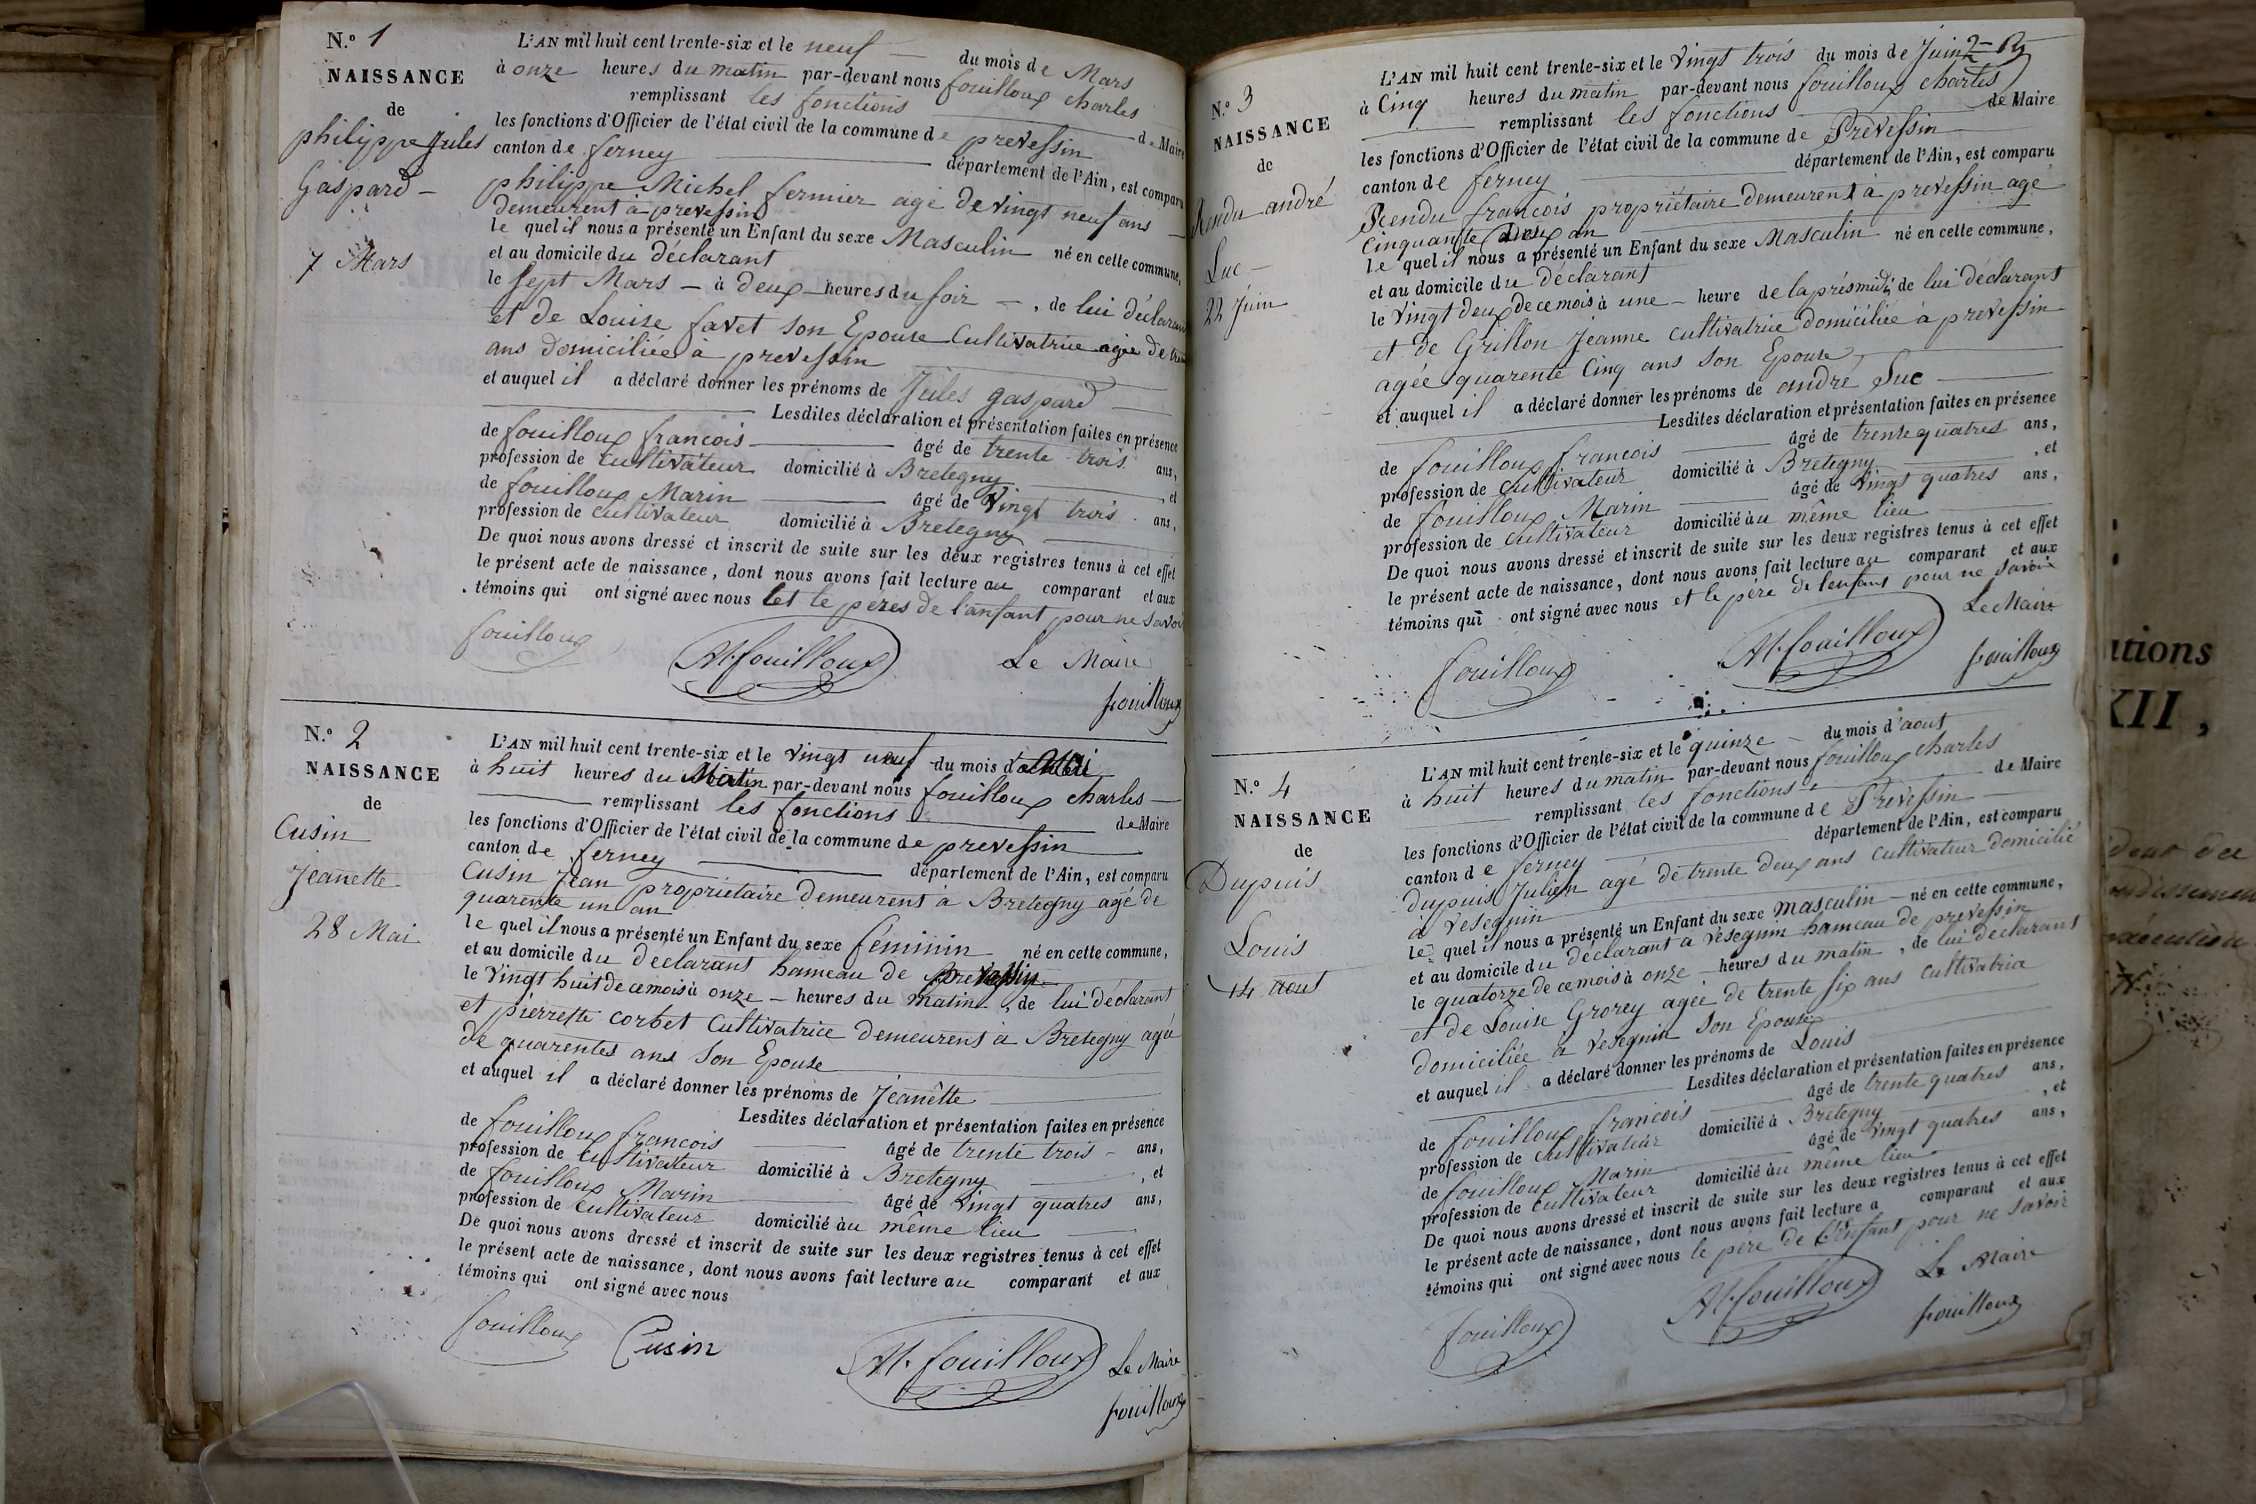 N.º 1
NAISSANCE
de
philippe Jules
Gaspard –
7 Mars
L'AN mil huit cent trente-six et le neuf du mois de Mars
à onze heures du matin par-devant nous fouilloux charles
remplissant les fonctions de Maire
les fonctions d'Officier de l'état civil de la commune de prevessin
canton de ferney département de l'Ain, est comparu
philippe Michel fermier agé de vingt neuf ans
demeurent à prevessin
le quel il nous a présenté un Enfant du sexe Masculin né en cette commune,
et au domicile du déclarant
le sept Mars – à deux heures du soir – , de lui déclarant
et de Louise favet son Epouse Cultivatrice agée de
ans domiciliée à prevessin
et auquel il a déclaré donner les prénoms de Jules gaspard
Lesdites déclaration et présentation faites en présence
de fouilloux francois âgé de trente trois ans,
profession de cultivateur domicilié à Bretegny , et
de fouilloux Marin âgé de vingt trois ans,
profession de cultivateur domicilié à Bretegny
De quoi nous avons dressé et inscrit de suite sur les deux registres tenus à cet effet
le présent acte de naissance, dont nous avons fait lecture au comparant et aux
témoins qui ont signé avec nous et le peres de l'anfant pour ne savoir
fouilloux M. fouilloux Le Maire
fouilloux
N.º 2
NAISSANCE
de
Cusin
Jeanette
28 Mai
L'AN mil huit cent trente-six et le vingt neuf du mois de Mai
à huit heures du Matin par-devant nous fouilloux charles –
remplissant les fonctions de Maire
les fonctions d'Officier de l'état civil de la commune de prevessin
canton de ferney département de l'Ain, est comparu
Cusin Jean propriétaire demeurent à Bretegny agé de
quarente un an
le quel il nous a présenté un Enfant du sexe féminin né en cette commune,
et au domicile du déclarant hameau de prevessin
le vingt huit de ce mois à onze – heures du matin , de lui déclarant
et pierrette corbet Cultivatrice demeurent à Bretegny agée
de quarentes ans son Epouse
et auquel il a déclaré donner les prénoms de Jeanêtte
Lesdites déclaration et présentation faites en présence
de fouilloux francois âgé de trente trois – ans,
profession de cultivateur domicilié à Bretegny , et
de fouilloux Marin âgé de vingt quatres ans,
profession de cultivateur domicilié àu même lieu
De quoi nous avons dressé et inscrit de suite sur les deux registres tenus à cet effet
le présent acte de naissance, dont nous avons fait lecture au comparant et aux
témoins qui ont signé avec nous
fouilloux Cusin M. fouilloux Le Maire
fouilloux
2
N.º 3
NAISSANCE
de
Rendu andré
Luc –
22 Juin
L'AN mil huit cent trente-six et le vingt trois du mois de Juin
à Cinq heures du matin par-devant nous fouilloux charles
remplissant les fonctions de Maire
les fonctions d'Officier de l'état civil de la commune de Prevessin
canton de ferney département de l'Ain, est comparu
Rendu francois propriétaire demeurent à prevessin agé
Cinquante deux an
le quel il nous a présenté un Enfant du sexe Masculin né en cette commune,
et au domicile du déclarant
le vingt deux de ce mois à une – heure de la présmidi, de lui déclarant
et de Grillon Jeanne cultivatrice domiciliée à prevessin
agée quarente Cinq ans son Epouse
et auquel il a déclaré donner les prénoms de andré Luc
Lesdites déclaration et présentation faites en présence
de fouilloux francois âgé de trente quatres ans,
profession de cultivateur domicilié à Bretegny , et
de fouilloux Marin âgé de vingt quatres ans,
profession de cultivateur domicilié àu même lieu
De quoi nous avons dressé et inscrit de suite sur les deux registres tenus à cet effet
le présent acte de naissance, dont nous avons fait lecture au comparant et aux
témoins qui ont signé avec nous et le père de l'enfant pour ne savoir
fouilloux M. fouilloux Le Maire
fouilloux
N.º 4
NAISSANCE
de
Dupuis
Louis
14 aout
L'AN mil huit cent trente-six et le quinze – du mois d'aout
à huit heures du matin par-devant nous fouilloux charles
remplissant les fonctions de Maire
les fonctions d'Officier de l'état civil de la commune de Prevessin
canton de ferney département de l'Ain, est comparu
dupuis Julien agé de trente deux ans cultivateur domicilié
à vesegnin
le quel il nous a présenté un Enfant du sexe masculin – né en cette commune,
et au domicile du déclarant à vesegnin hameau de prevessin
le quatorze de ce mois à onze heures du matin , de lui déclarant
et de Louise Grorey agée de trente six ans cultivatrice
domiciliée à vesegnin son Epouse
et auquel il a déclaré donner les prénoms de Louis
Lesdites déclaration et présentation faites en présence
de fouilloux francois âgé de trente quatres ans,
profession de cultivateur domicilié à Bretegny , et
de fouilloux Marin âgé de vingt quatres ans,
profession de cultivateur domicilié àu même lieu
De quoi nous avons dressé et inscrit de suite sur les deux registres tenus à cet effet
le présent acte de naissance, dont nous avons fait lecture a comparant et aux
témoins qui ont signé avec nous le père de l'enfant pour ne savoir
fouilloux M. fouilloux Le Maire
fouilloux
ations
XII,